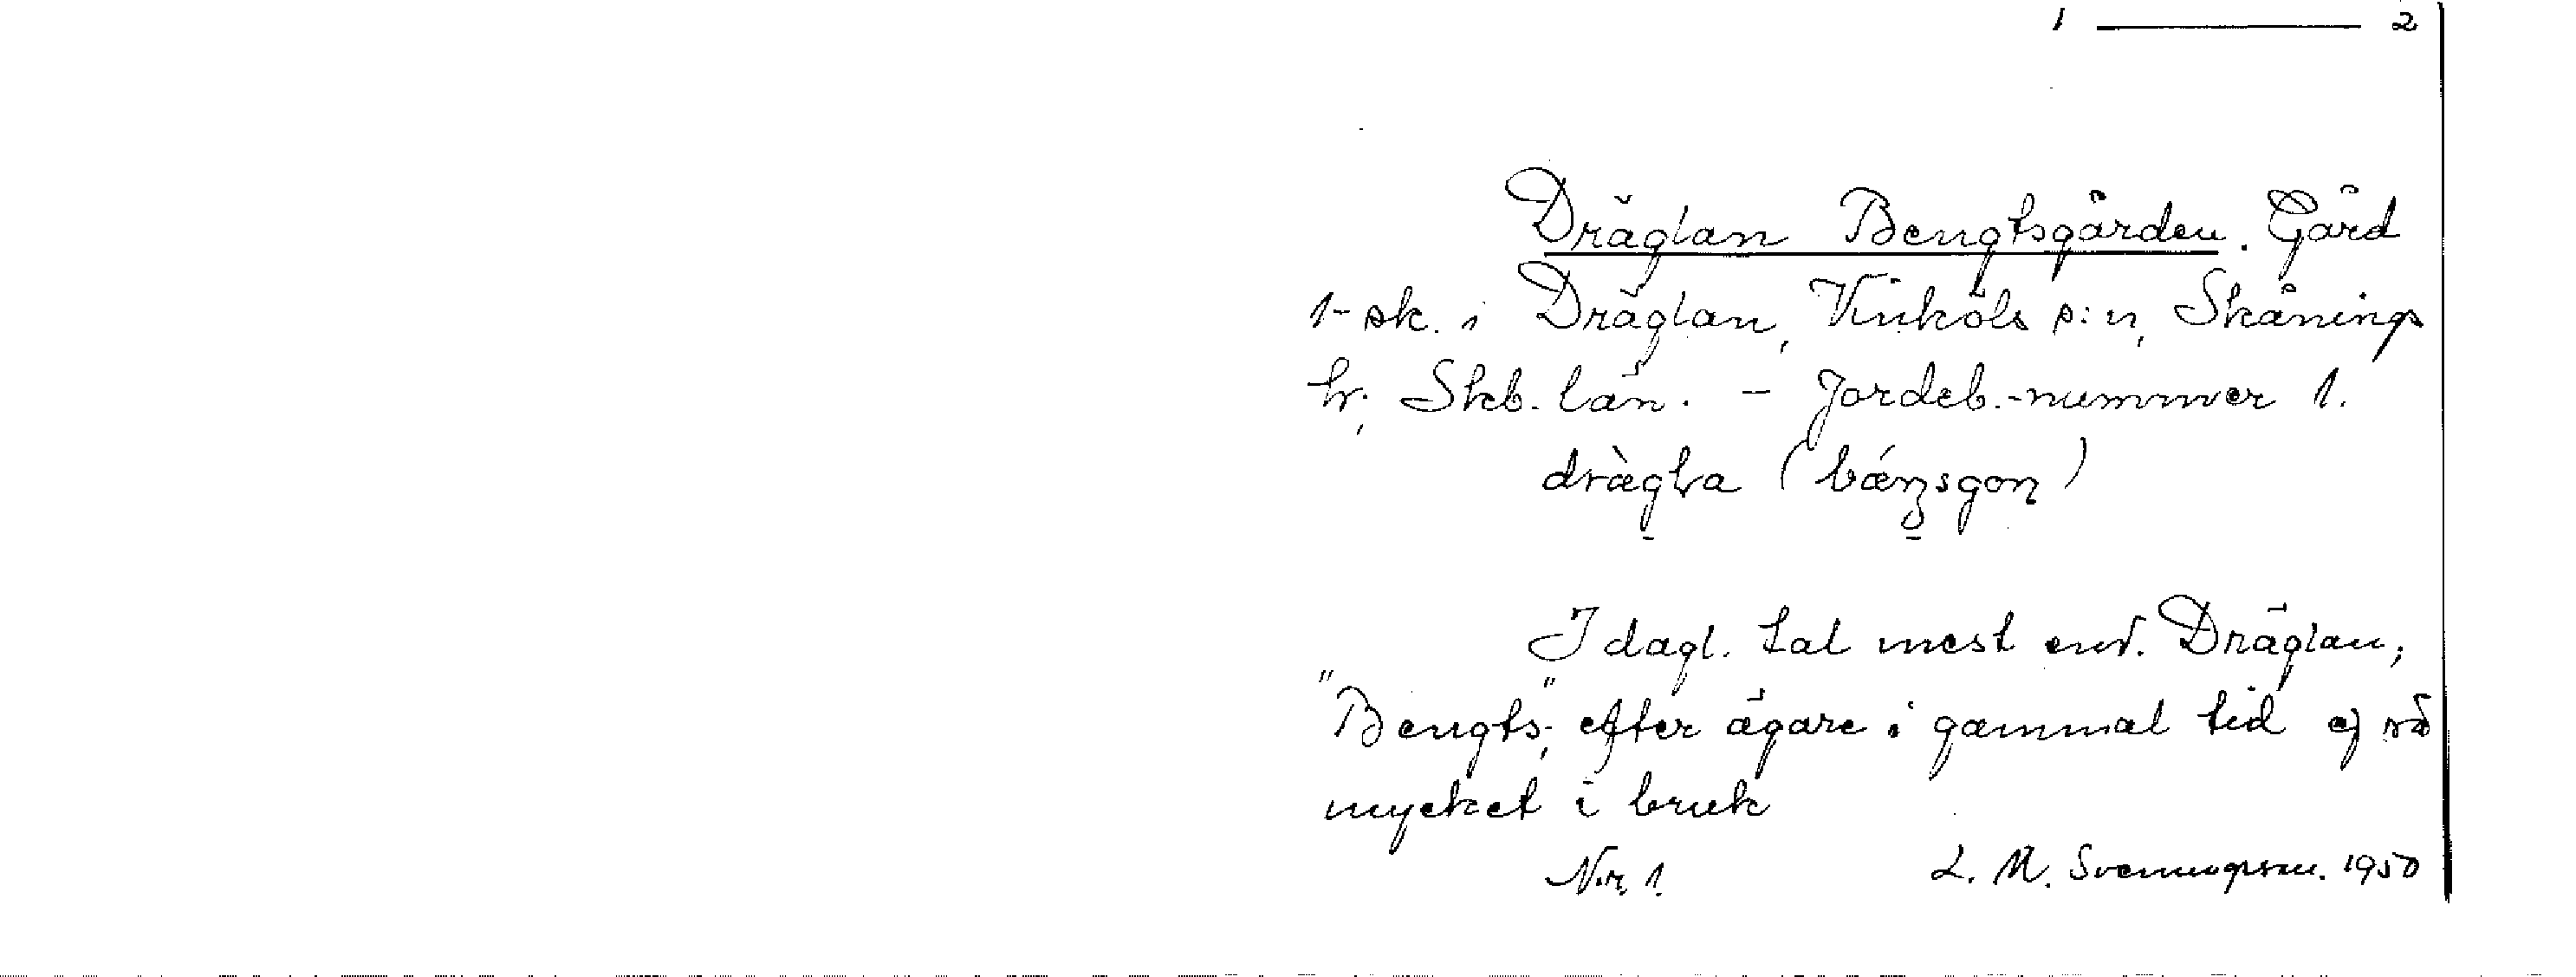 1 ——— 2
Dräglan Bengtsgården. Gård
1-sk. i Dräglan, Vinköls s:n, Skånings
hr, Skb. län. – Jordeb.-nummer 1.
I dagl. tal mest anv. Dräglan;
"Bengts-", efter ägare i gammal tid ej så
mycket i bruk
N:r 1. L. M. Svenungsson. 1950